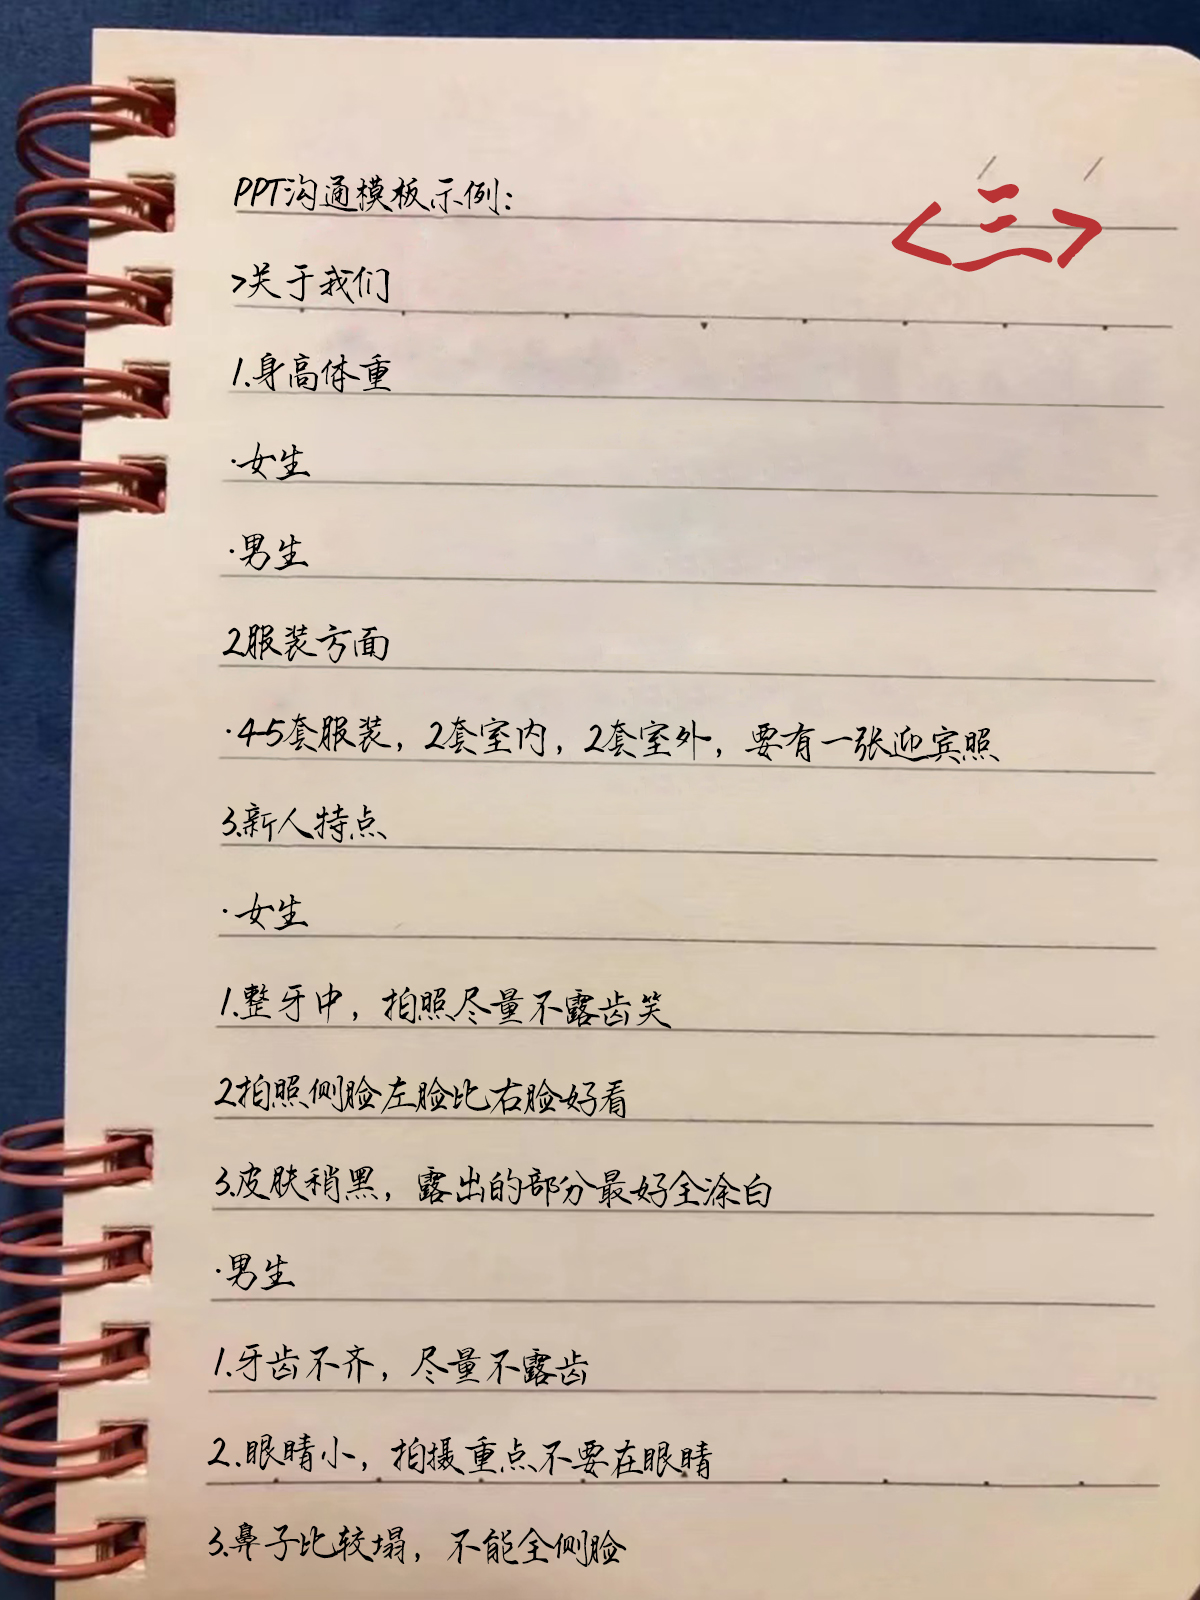 PPT沟通模板示例：
<三>
>关于我们
1.身高体重
·女生
·男生
2.服装方面
·4-5套服装，2套室内，2套室外，要有一张迎宾照
3.新人特点
·女生
1.整牙中，拍照尽量不露齿笑
2.拍照侧脸左脸比右脸好看
3.皮肤稍黑，露出的部分最好全涂白
·男生
1.牙齿不齐，尽量不露齿
2.眼睛小，拍摄重点不要在眼睛
3.鼻子比较塌，不能全侧脸